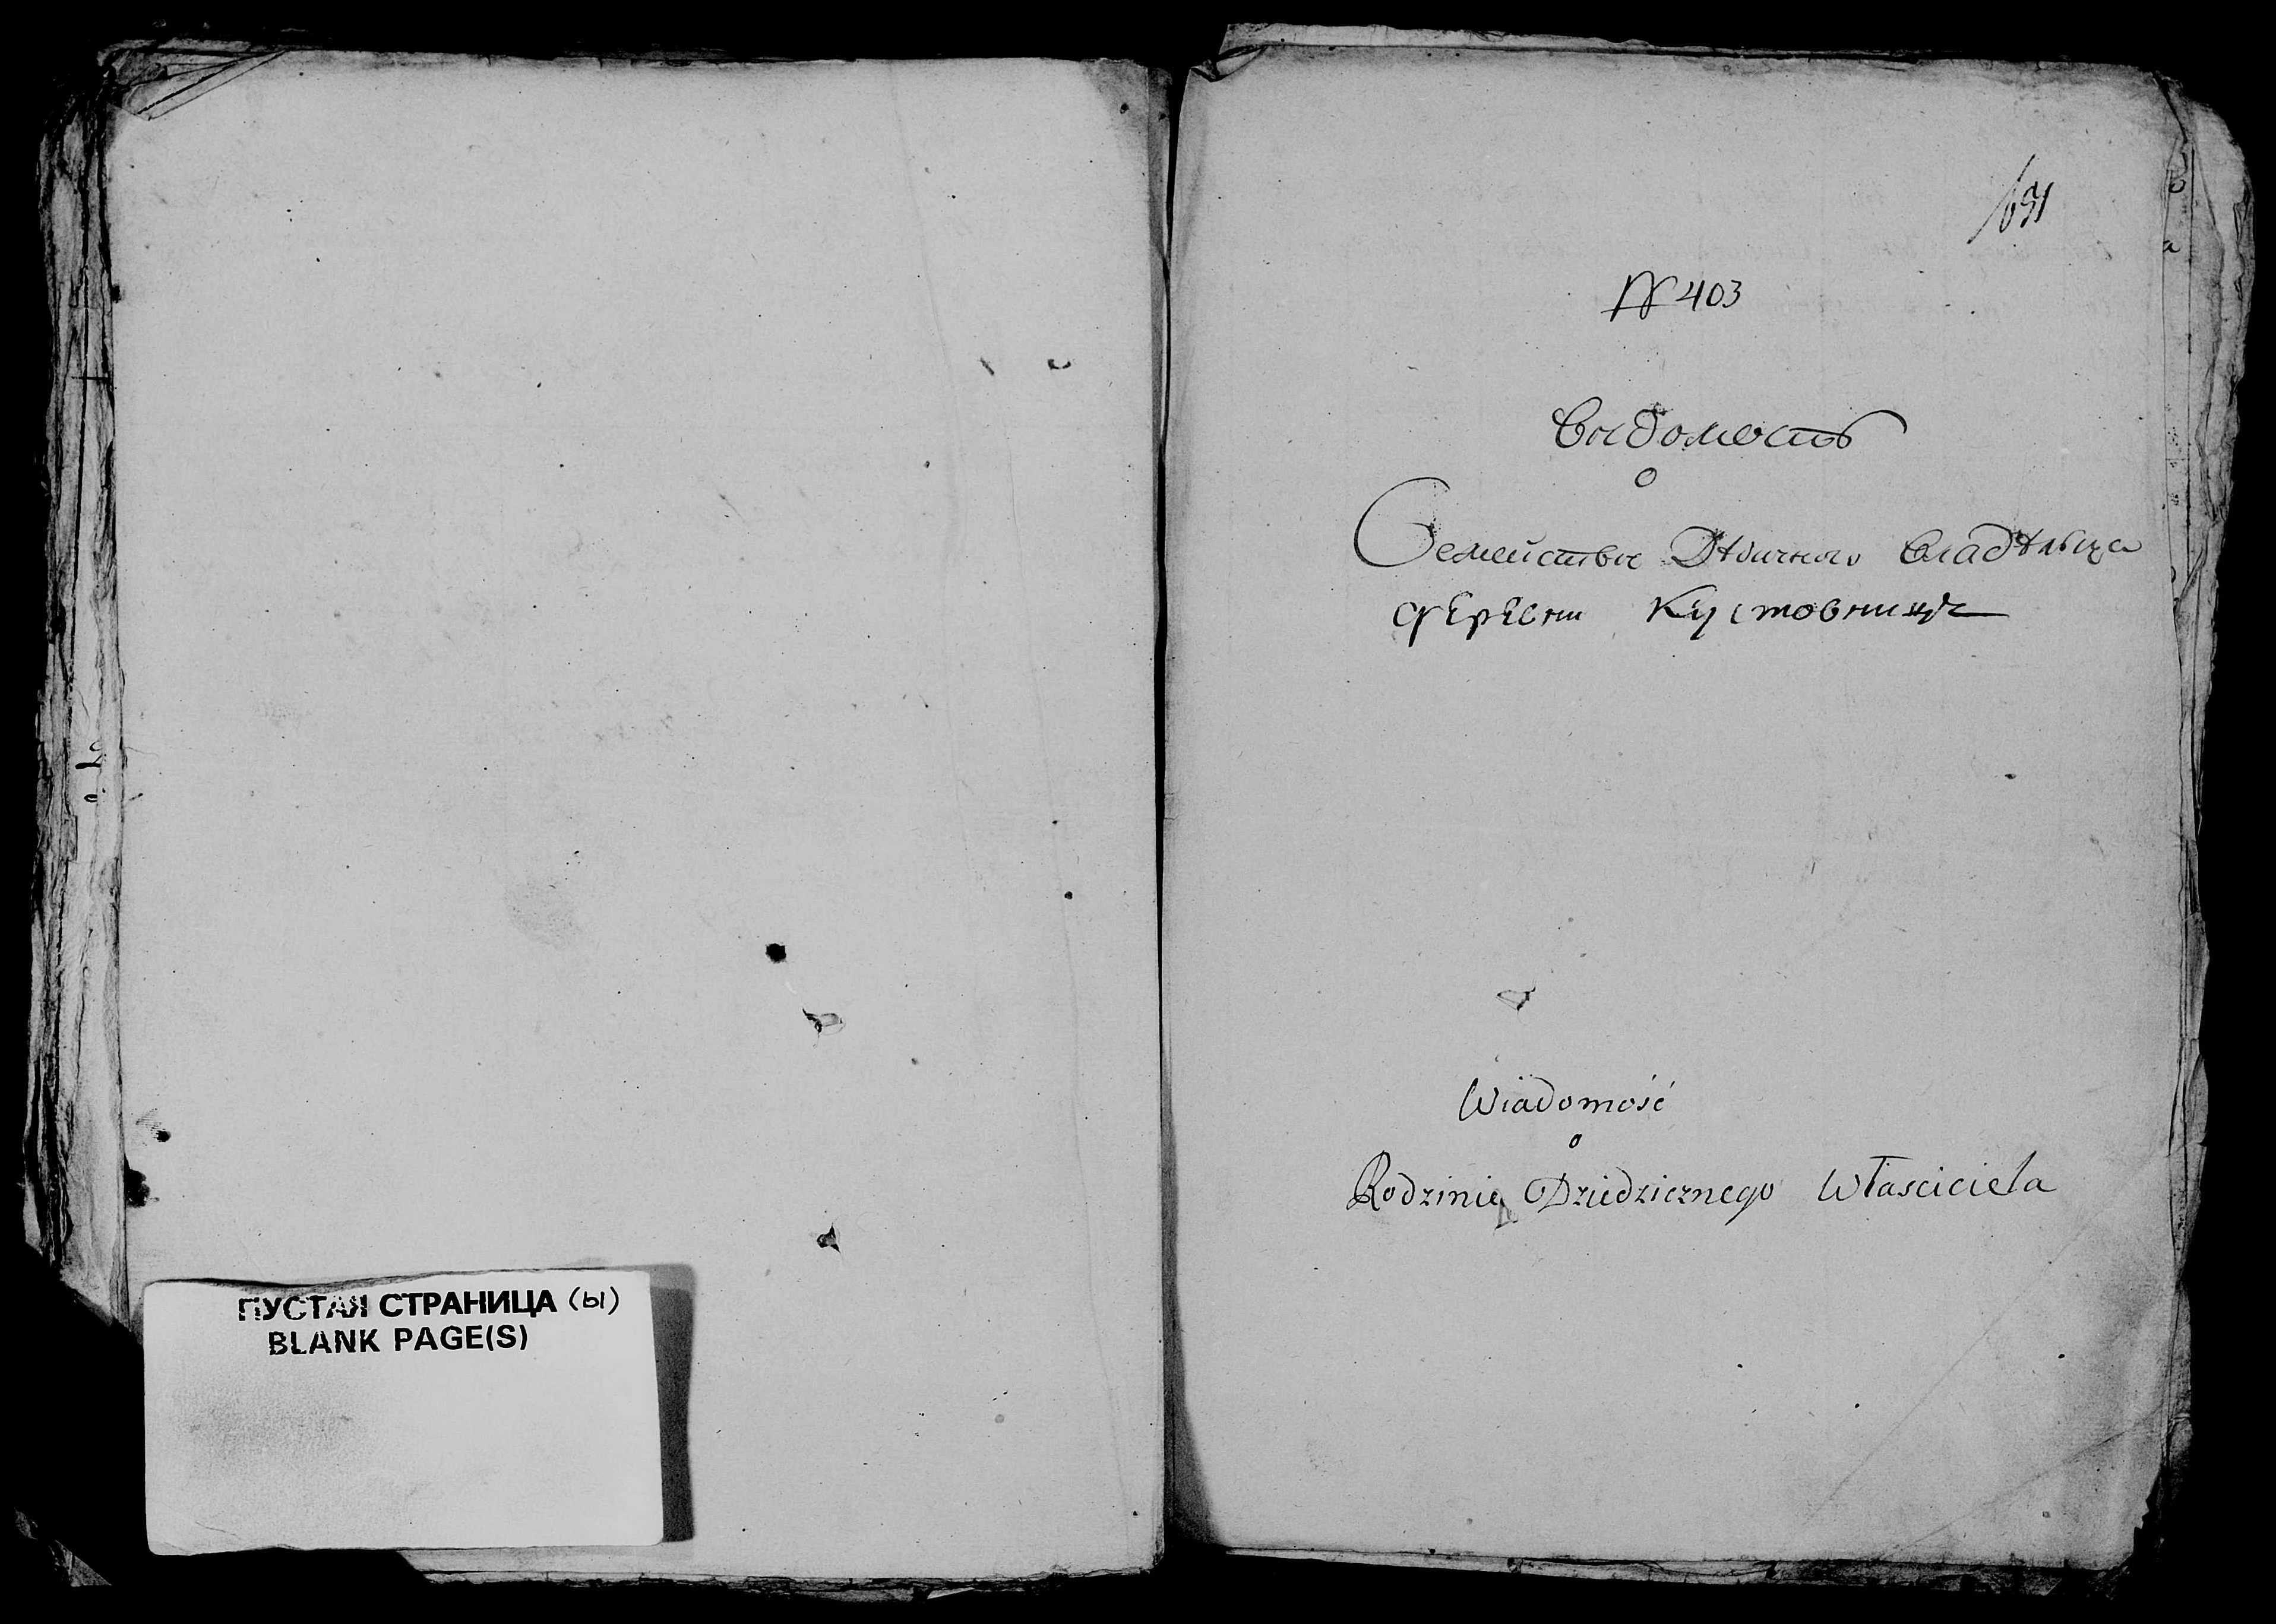 ПУСТАЯ СТРАНИЦА (ы)
BLANK PAGE(S)
651
№ 403
Вѣдомость
о
Семействѣ Дѣдичнаго Владѣльца
деревни Кустовницѣ
Wiadomość
o
Rodzinie Dziedzicznego Własciciela